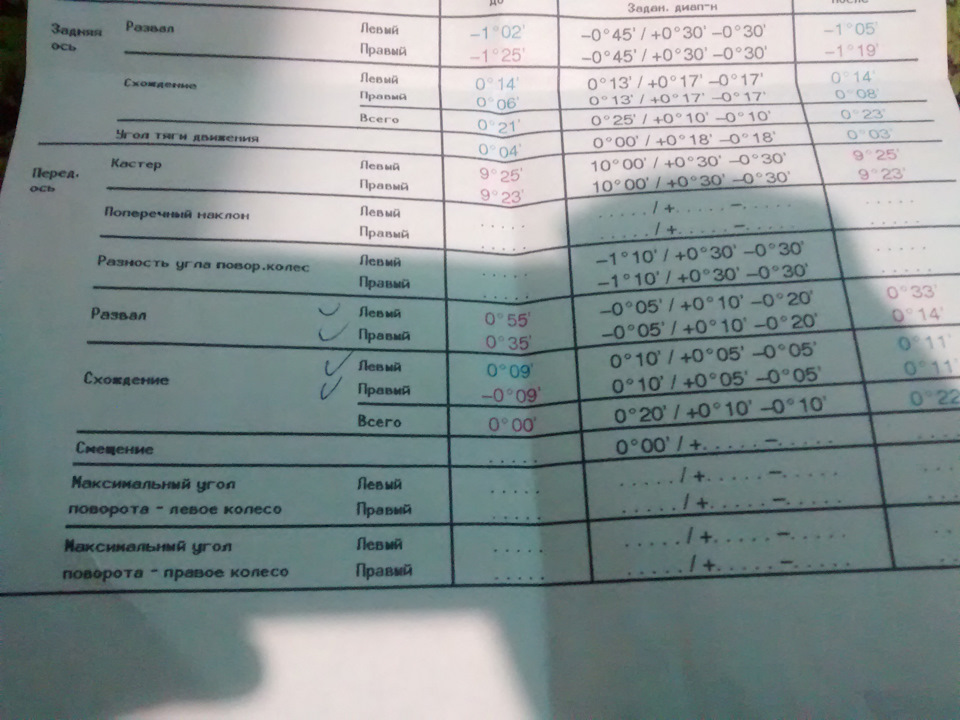 до Задан. диап-н после
Задняя ось Развал Левый -1°02' -0°45' / +0°30' -0°30' -1°05'
Правый -1°25' -0°45' / +0°30' -0°30' -1°19'
Схождение Левый 0°14' 0°13' / +0°17' -0°17' 0°14'
Правый 0°06' 0°13' / +0°17' -0°17' 0°08'
Всего 0°21' 0°25' / +0°10' -0°10' 0°23'
Угол тяги движения 0°04' 0°00' / +0°18' -0°18' 0°03'
Перед. ось Кастер Левый 9°25' 10°00' / +0°30' -0°30' 9°25'
Правый 9°23' 10°00' / +0°30' -0°30' 9°23'
Поперечный наклон Левый ..... ...../+.....-..... .....
Правый ..... ...../+.....-..... .....
Разность угла повор.колес Левый ..... -1°10' / +0°30' -0°30' .....
Правый ..... -1°10' / +0°30' -0°30' .....
Развал Левый 0°55' -0°05' / +0°10' -0°20' 0°33'
Правый 0°35' -0°05' / +0°10' -0°20' 0°14'
Схождение Левый 0°09' 0°10' / +0°05' -0°05' 0°11'
Правый -0°09' 0°10' / +0°05' -0°05' 0°11'
Всего 0°00' 0°20' / +0°10' -0°10' 0°22
Смещение ..... 0°00' / +.....-..... ....
Максимальный угол Левый ..... ...../+.....-..... ...
поворота - левое колесо Правый ..... ...../+.....-..... ....
Максимальный угол Левый ..... ...../+.....-..... ..
поворота - правое колесо Правый ..... ...../+.....-..... ...